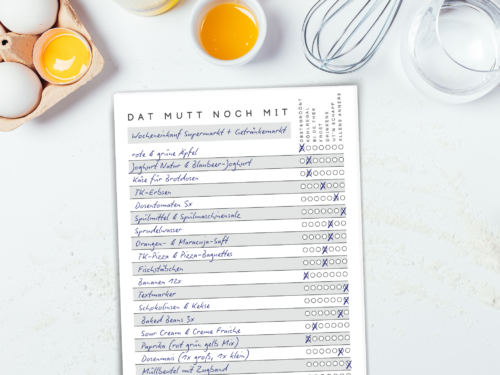 DAT MUTT NOCH MIT
OBSTABROOBT
KÖHLREGAL
FROST
DRINKENS
UT'N SCHAPP
ALLENS ANNERE
Wocheneinkauf Supermarkt + Getränkemarkt
rote & grüne Äpfel
Joghurt Natur & Blaubeer-Joghurt
Käse für Brotdosen
TK-Erbsen
Dosentomaten 5x
Spülmittel & Spülmaschinensalz
Sprudelwasser
Orangen- & Maracuja-Saft
TK-Pizza & Pizza-Baguettes
Fischstäbchen
Bananen 12x
Textmarker
Schokolinsen & Kekse
Baked Beans 3x
Sour Cream & Creme Fraiche
Paprika (rot grün gelb Mix)
Dosenmais (1x groß, 1x klein)
Müllbeutel mit Zugband